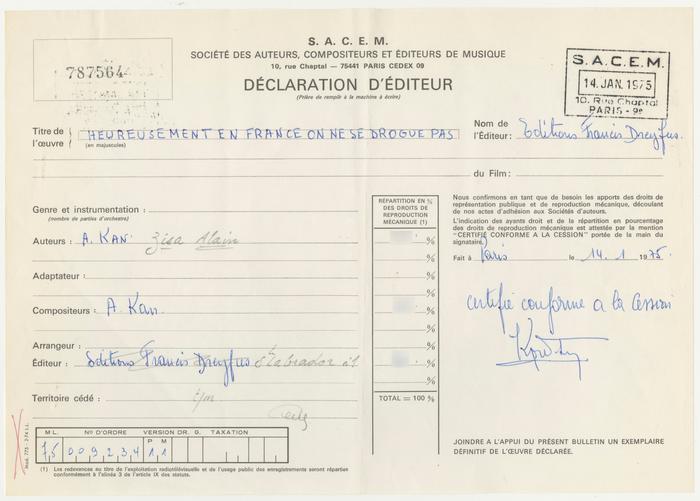 S. A. C. E. M.
SOCIÉTÉ DES AUTEURS, COMPOSITEURS ET ÉDITEURS DE MUSIQUE
10, rue Chaptal — 75441 PARIS CEDEX 09
DÉCLARATION D'ÉDITEUR
(Prière de remplir à la machine à écrire)
787564
S.A.C.E.M.
14 JAN. 1975
10, Rue Chaptal
PARIS - 9e
Titre de l'œuvre : HEUREUSEMENT EN FRANCE ON NE SE DROGUE PAS
(en majuscules)
Nom de l'Éditeur : Editions Francis Dreyfus.
du Film :
Genre et instrumentation :
(nombre de parties d'orchestre)
Auteurs : A. KAN Zisa Alain
Adaptateur :
Compositeurs : A. Kan.
Arrangeur :
Éditeur : Editions Francis Dreyfus
Territoire cédé :
RÉPARTITION EN %
DES DROITS DE
REPRODUCTION
MÉCANIQUE (1)
%
%
%
%
%
%
%
%
TOTAL = 100 %
Nous confirmons en tant que de besoin les apports des droits de
représentation publique et de reproduction mécanique, découlant
de nos actes d'adhésion aux Sociétés d'auteurs.
L'indication des ayants droit et de la répartition en pourcentage
des droits de reproduction mécanique est attestée par la mention
"CERTIFIÉ CONFORME A LA CESSION" portée de la main du
signataire.
Fait à Paris le 14.1 1975.
certifié conforme a la cession
M L. N° D'ORDRE VERSION DR. G. TAXATION
P M
75 009234 11
mod. 773 - 3-74 I.I.
(1) Les redevances au titre de l'exploitation radiotélévisuelle et de l'usage public des enregistrements seront réparties
conformément à l'alinéa 3 de l'article IX des statuts.
JOINDRE A L'APPUI DU PRÉSENT BULLETIN UN EXEMPLAIRE
DÉFINITIF DE L'ŒUVRE DÉCLARÉE.